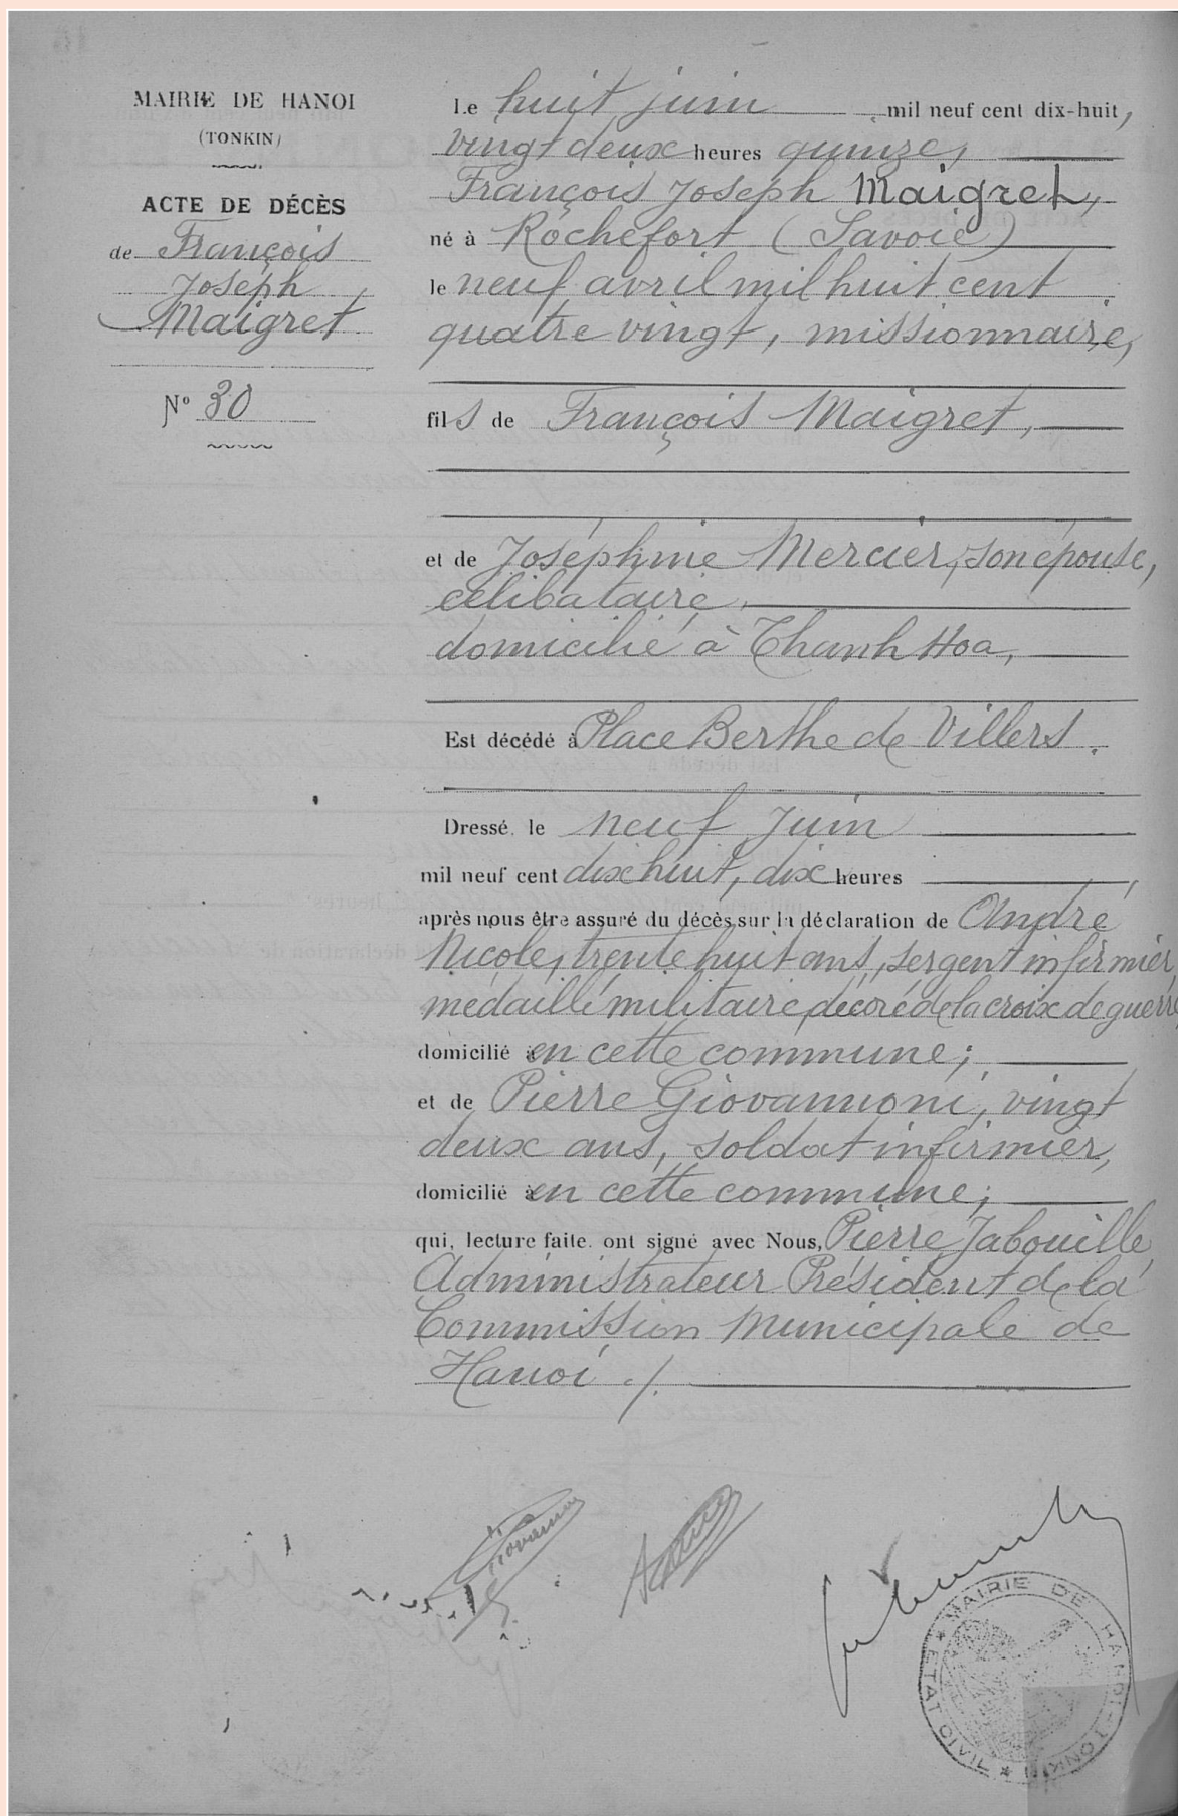 MAIRIE DE HANOI
(TONKIN)
ACTE DE DÉCÈS
de François
Joseph
Maigret
Nº 30
Le huit juin mil neuf cent dix-huit,
vingt deux heures quinze,
François Joseph Maigret,
né à Rochefort (Savoie)
le neuf avril mil huit cent
quatre vingt, missionnaire,
fils de François Maigret,
et de Joséphine Mercier, son épouse,
célibataire,
domicilié à Thanh Hoa,
Est décédé à Place Berthe de Villers.
Dressé le neuf Juin
mil neuf cent dix huit, dix heures
après nous être assuré du décès, sur la déclaration de André
Nicole, trente huit ans, sergent infirmier,
médaillé militaire, décoré de la croix de guerre
domicilié à en cette commune;
et de Pierre Giovannoni, vingt
deux ans, soldat infirmier,
domicilié à en cette commune;
qui, lecture faite, ont signé avec Nous, Pierre Jabouille,
Administrateur Président de la
Commission Municipale de
Hanoi ./.
MAIRIE DE HANOI-TONKIN
* ETAT CIVIL *